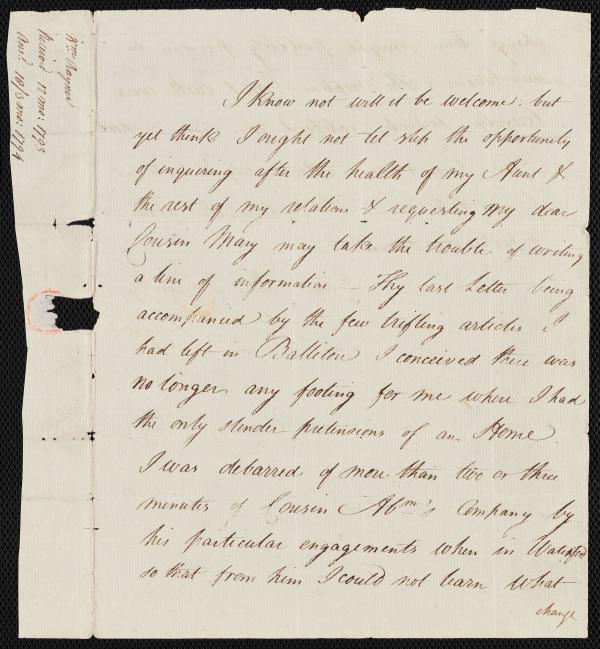 Wm Rayner
Received 12 mo: 1793
Ansd. 10/3 mo: 1794
I know not will it be welcome, but
yet think I ought not let slip the opportunity
of inquiring after the health of my Aunt &
the rest of my relations & requesting my dear
Cousin Mary may take the trouble of writing
a line of information — Thy last Letter being
accompanied by the few trifling articles I
had left in Ballitore I conceived there was
no longer any footing for me where I had
the only slender pretensions of an Home
I was debarred of more than two or three
minutes of Cousin Abm's Company by
his particular engagements when in Waterford
so that from him I could not learn what
change